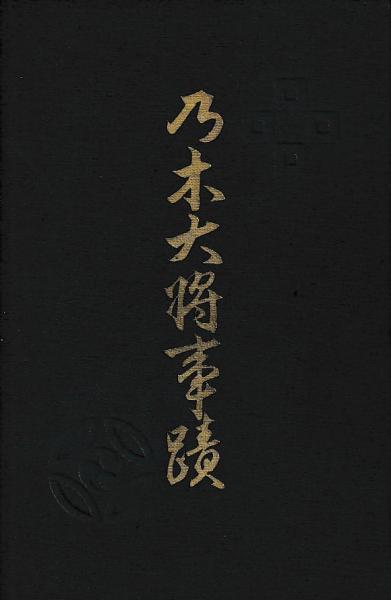 乃木大将事蹟